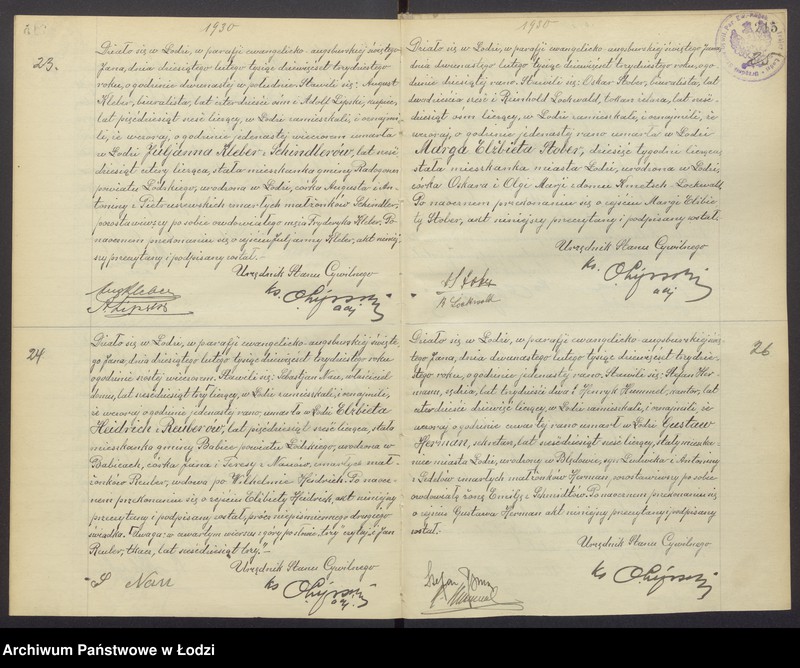 1930
23.
Działo się w Łodzi, w parafji ewangelicko-augsburskiej świętego
Jana, dnia dziesiątego lutego tysiąc dziewięćset trzydziestego
roku, o godzinie dwunastej w południe. Stawili się: August
Kleber, biuralista, lat czterdzieści osiem i Adolf Lipski, kupiec,
lat pięćdziesiąt sześć liczący, w Łodzi zamieszkali, i oznajmi-
li, że wczoraj, o godzinie jedenastej wieczorem umarła
w Łodzi Juljanna Kleber z Schindlerów, lat sześć
dziesiąt cztery licząca, stała mieszkanka gminy Radogoszcz
powiatu Łódzkiego, urodzona w Łodzi, córka Augusta i An-
toniny z zmarłych małżonków Schindler,
pozostawiwszy po sobie owdowiałego męża Fryderyka Kleber. Po
naocznem przekonaniu się o zejściu Juljanny Kleber, akt niniej-
szy przeczytany i podpisany został.
Urzędnik Stanu Cywilnego
Aug Kleber
A. Lipski
ks.
adj.
24.
Działo się w Łodzi, w parafji ewangelicko-augsburskiej święte-
go Jana, dnia dziesiątego lutego tysiąc dziewięćset trzydziestego roku
o godzinie szóstej wieczorem. Stawili się: Sebastjan Nau, właściciel
domu, lat sześćdziesiąt trzy liczący, w Łodzi zamieszkali, i oznajmili,
że wczoraj o godzinie jedenastej rano, umarła w Łodzi Elżbieta
Heidrich z Reuterów, lat pięćdziesiąt sześć licząca, stała
mieszkanka gminy Babice powiatu Łódzkiego, urodzona w
Babicach, córka Jana i Teresy z zmarłych mał-
żonków Reuter, wdowa po Wilhelmie Heidrich. Po naocz-
nem przekonaniu się o zejściu Elżbiety Heidrich, akt niniejszy
przeczytany i podpisany został, prócz niepiśmiennego drugiego
świadka. Uwaga: w czwartym wierszu z góry po słowie "trzy" czytaj: i Jan
Reuter, tkacz, lat sześćdziesiąt trzy.
Urzędnik Stanu Cywilnego
S Nau
ks.
adj.
1930
Działo się w Łodzi, w parafji ewangelicko-augsburskiej świętego Jana,
dnia dwunastego lutego tysiąc dziewięćset trzydziestego roku, o go-
dzinie dziesiątej rano. Stawili się: Oskar Stober, biuralista, lat
dwadzieścia sześć i Reinhold Lockwald, tokarz żelaza, lat sześć-
dziesiąt osiem liczący, w Łodzi zamieszkali, i oznajmili, że
wczoraj, o godzinie jedenastej rano umarła w Łodzi
Marga Elżbieta Stober, dziesięć tygodni licząca,
stała mieszkanka miasta Łodzi, urodzona w Łodzi,
córka Oskara i Olgi Marji z domu
Po naocznem przekonaniu się o zejściu Margi Elżbie-
ty Stober, akt niniejszy przeczytany i podpisany został.
Urzędnik Stanu Cywilnego
R Lockwald
ks.
adj.
26
Działo się w Łodzi, w parafji ewangelicko-augsburskiej świę-
tego Jana, dnia dwunastego lutego tysiąc dziewięćset trzydzie-
stego roku, o godzinie jedenastej rano. Stawili się: Stefan Her-
mann, lat trzydzieści dwa i Henryk Hummel, kantor, lat
czterdzieści dziewięć liczący, w Łodzi zamieszkali, i oznajmili, że
wczoraj o godzinie czwartej rano umarł w Łodzi Gustaw
Herman, lat sześćdziesiąt sześć liczący, stały mieszka-
niec miasta Łodzi, urodzony w Błędowie, syn Ludwika i Antoniny
z zmarłych małżonków Herman, pozostawiwszy po sobie
owdowiałą żonę Emilję z Schmidtów. Po naocznem przekonaniu się
o zejściu Gustawa Herman akt niniejszy przeczytany i podpisany
został.
Urzędnik Stanu Cywilnego
Stefan
Hummel
ks.
Archiwum Państwowe w Łodzi